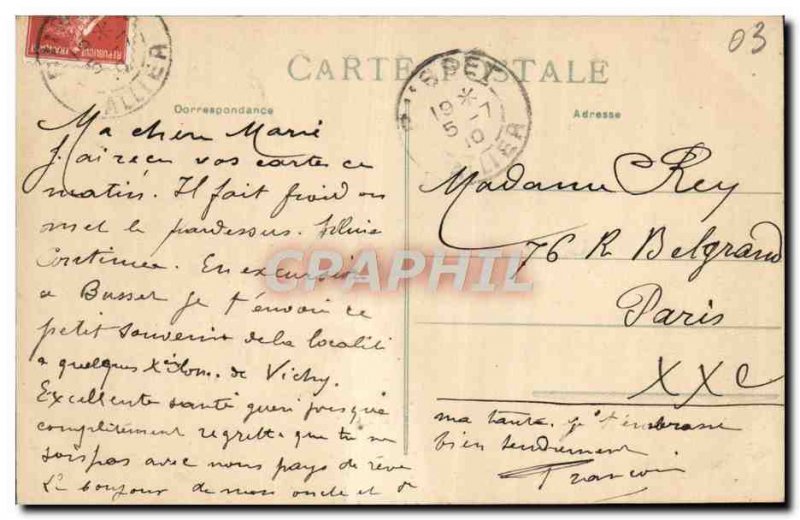 03
CARTE POSTALE
Correspondance
Adresse
BUSSET
* 7
19
5 - 10
ALLIER
REPUBLIQUE FRANÇAISE
ALLIER
Ma chère Marie
J'ai reçu vos cartes ce
matin. Il fait froid on
met le pardessus.
Continue. En excursion
a Busset je t'envoie ce
petit souvenir de la localité
a quelques de Vichy.
Excellente santé gueri presque
complètement regrette que tu ne
sois pas avec nous pays de rêve
Le bonjour de mon oncle et de
ma tante. je t'embrasse
bien tendrement
François
Madame Rey
76 R Belgrand
Paris
XXe
CPAPHIL